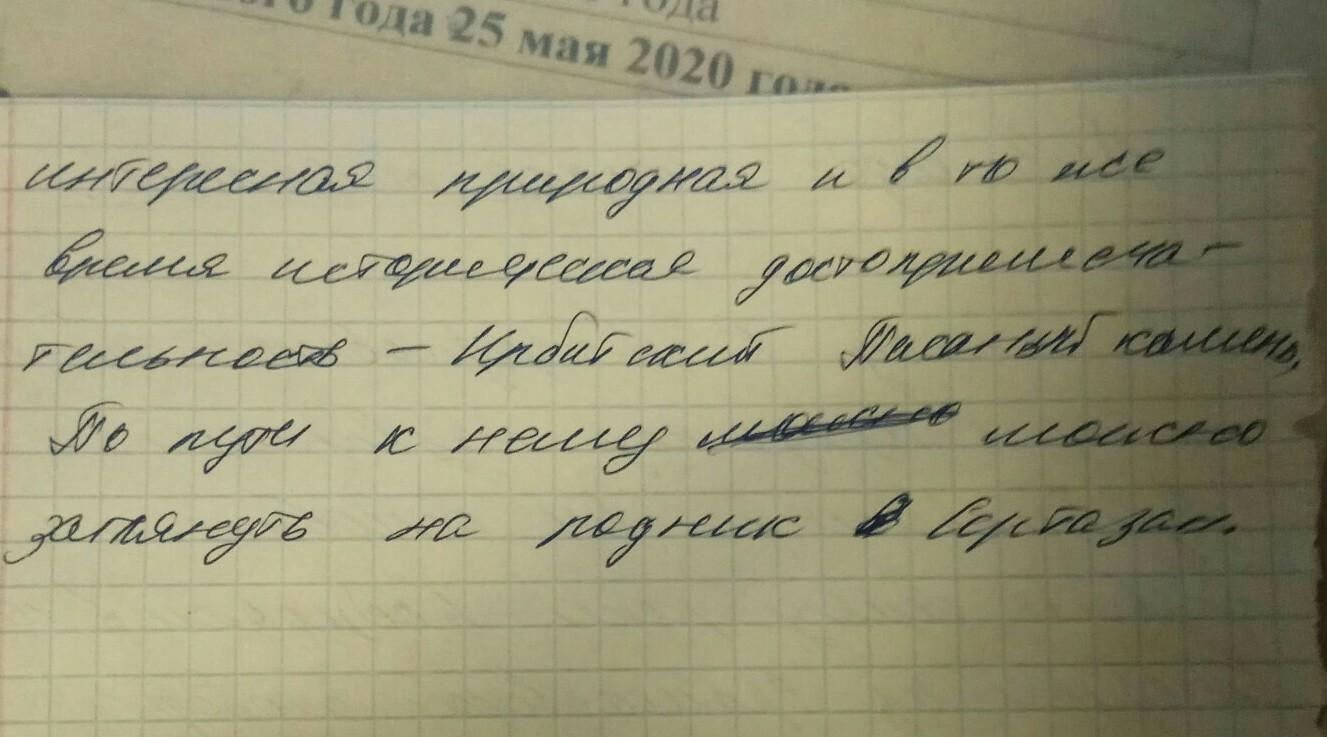 года
го года 25 мая 2020 года
интересная природная и в то же
время историческая достопримеча-
тельность – Ирбитский Писаный камень.
По пути к нему можно можно
заглянуть на родник в